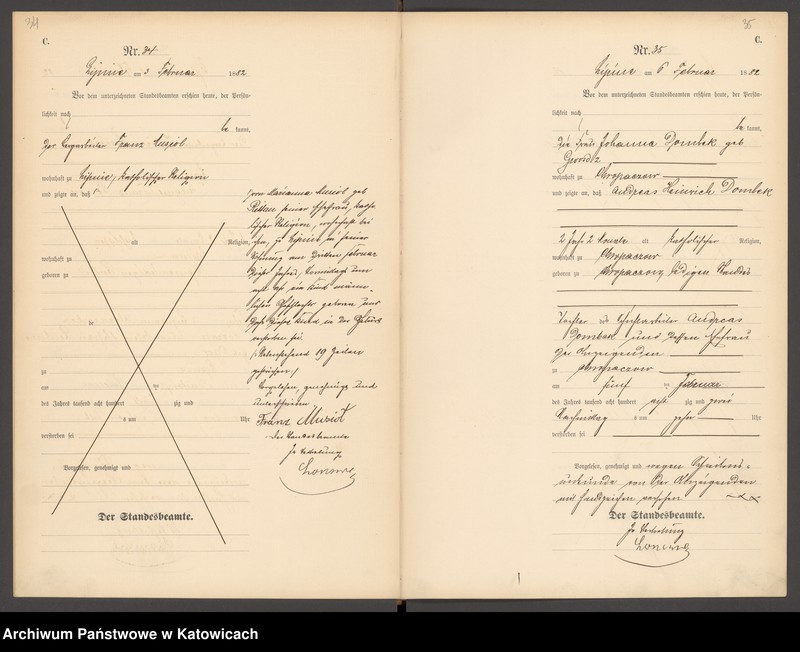 34
C.
Nr. 34
Lipine am 3 Februar 1882
Vor dem unterzeichneten Standesbeamten erschien heute, der Persön-
lichkeit nach
be kannt,
der Bergarbeiter Franz Musiol
wohnhaft zu Lipine, katholischer Religion
und zeigte an, daß
von Marianna Musiol geb
seiner Ehefrau, katho-
lischer Religion, wohnhaft bei
ihm, zu Lipine in seiner
Wohnung am dritten Februar
dieses Jahres, Vormittags um
acht Uhr ein Kind männ-
lichen Geschlechts geboren und
daß dieses Kind in der Geburt
verstorben sei.
(Vorstehend 19 Zeilen
gestrichen)
Vorgelesen, genehmigt und
unterschrieben
Franz Musiol
Der Standesbeamte
In Vertretung
alt Religion,
wohnhaft zu
geboren zu
de
zu
am ten
des Jahres tausend acht hundert zig und
s um Uhr
verstorben sei
Vorgelesen, genehmigt und
Der Standesbeamte.
35
C.
Nr. 35
Lipine am 6 Februar 1882
Vor dem unterzeichneten Standesbeamten erschien heute, der Persön-
lichkeit nach
be kannt,
die Frau Johanna Dombek geb
wohnhaft zu Chropaczow
und zeigte an, daß Andreas Heinrich Dombek
2 Jahr 2 Monate alt katholischer Religion,
wohnhaft zu Chropaczow
geboren zu Chropaczow, ledigen Standes
Andreas
Dombek und dessen Ehefrau
der Anzeigenden
zu Chropaczow
am fünf ten Februar
des Jahres tausend acht hundert acht zig und zwei
Nachmittag s um zehn Uhr
verstorben sei
Vorgelesen, genehmigt und wegen Schreibens-
unkunde von der Anzeigenden
mit Handzeichen versehen xxx
Der Standesbeamte.
In Vertretung
Archiwum Państwowe w Katowicach